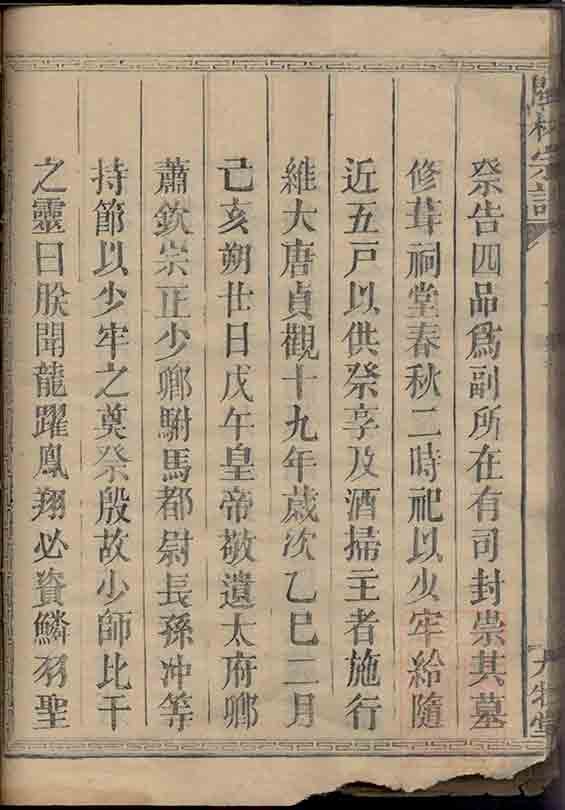 林宗譜
祭告四品爲副所在有司封崇其墓
修葺祠堂春秋二時祀以少牢給隨
近五戶以供祭享及酒掃主者施行
維大唐貞觀十九年歲次乙巳二月
己亥朔廿日戊午皇帝敬遺太府卿
蕭欽宗正少卿駙馬都尉長孫冲等
持節以少牢之奠祭殷故少師比干
之靈曰朕聞龍躍鳳翔必資鱗羽聖